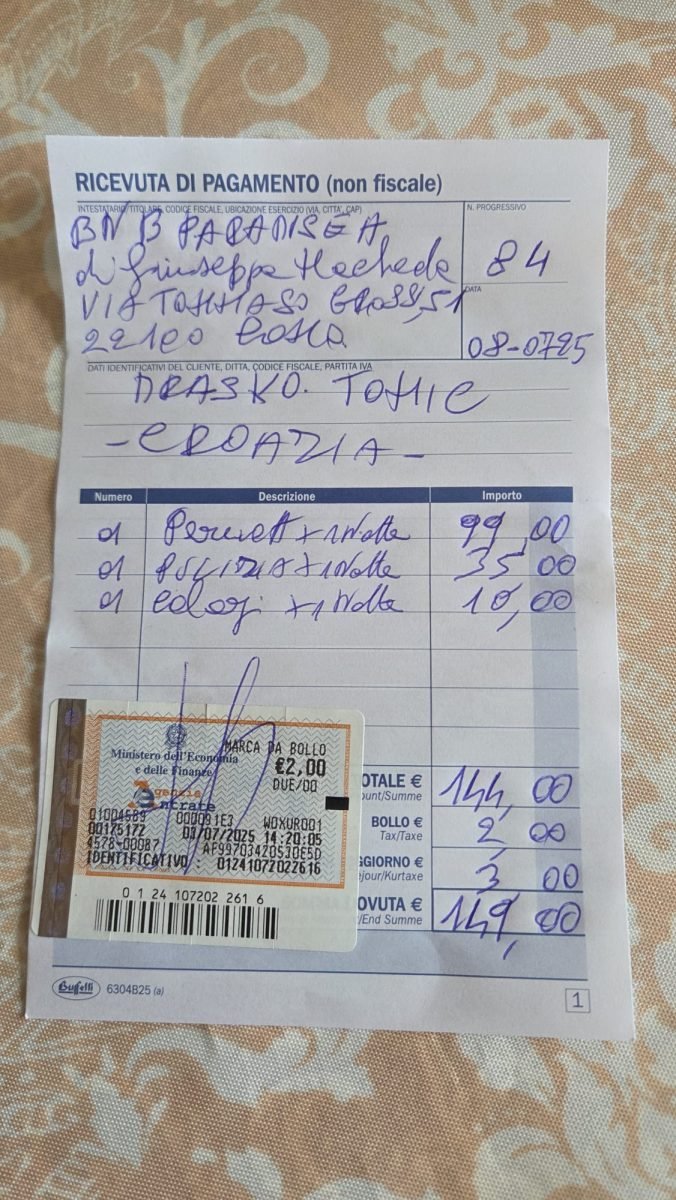 RICEVUTA DI PAGAMENTO (non fiscale)
INTESTATARIO TITOLARE, CODICE FISCALE, UBICAZIONE ESERCIZIO (VIA, CITTA', CAP)
N. PROGRESSIVO
BNB PARADISEA
di Giuseppa Macheda
84
VIA TOMMASO GROSSI, 51
DATA
22100 Como
08-0725
DATI IDENTIFICATIVI DEL CLIENTE, DITTA, CODICE FISCALE, PARTITA IVA
DRASKO. TOMIC
- CROAZIA -
Numero Descrizione Importo
01 Pernott x 1 Notte 99,00
01 PULIZIA x 1 Notte 35 00
01 colaz x 1 Notte 10,00
MARCA DA BOLLO
Ministero dell'Economia
e delle Finanze
€2,00
DUE/00
Agenzia
Entrate
01004589 000091E3 W0XUR001
00175172 03/07/2025 14:20:05
4578-00087 AF99703420530E5D
IDENTIFICATIVO : 01241072022616
0 1 24 107202 261 6
OTALE € 144,00
ount/Summe
BOLLO € 2,00
Tax/Taxe
GGIORNO € 3 00
ejour/Kurtaxe
OVUTA € 149,00
/End Summe
Buffetti 6304B25 (a)
1